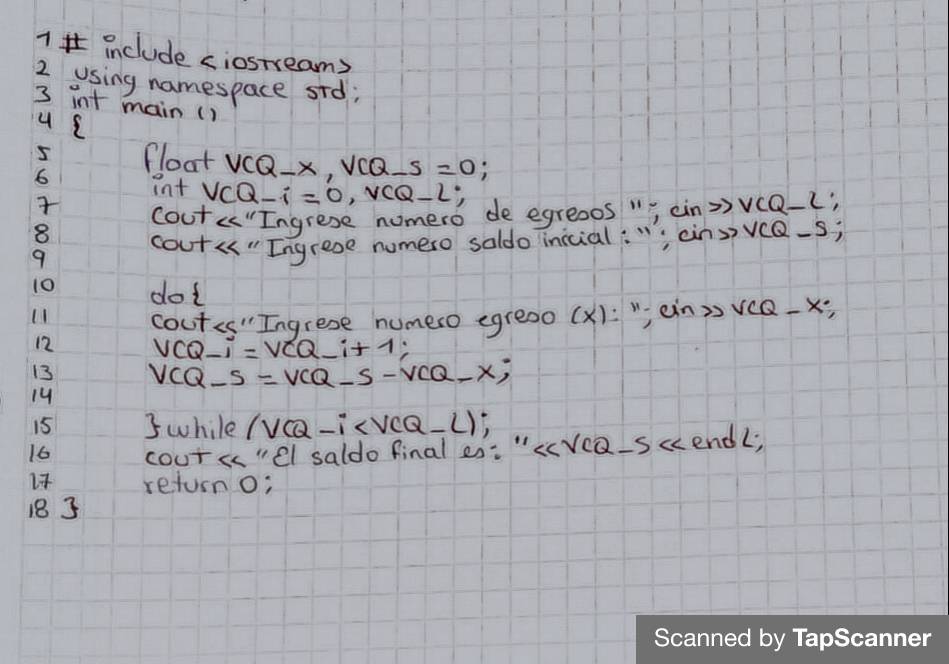 1 # include <iostream>
2 using namespace std;
3 int main ()
4 {
5 float VCQ_x, VCQ_s=0;
6 int VCQ_i=0, VCQ_L;
7 cout<<"Ingrese numero de egresos "; cin>>VCQ_L;
8 cout<<"Ingrese numero saldo inicial:"; cin>>VCQ_s;
9
10 do{
11 cout<<"Ingrese numero egreso (x): "; cin>>VCQ_x;
12 VCQ_i=VCQ_i+1;
13 VCQ_s=VCQ_s-VCQ_x;
14
15 }while(VCQ_i<VCQ_L);
16 cout<<"El saldo final es: "<<VCQ_s<<endL;
17 return 0;
18 }
Scanned by TapScanner